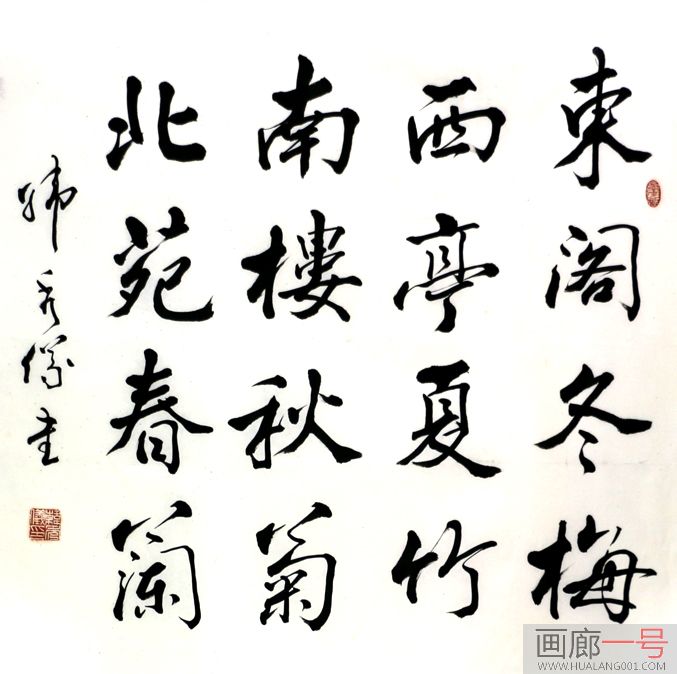 東閣冬梅
西亭夏竹
南樓秋菊
北苑春蘭
書
画廊一号
WWW.HUALANG001.COM